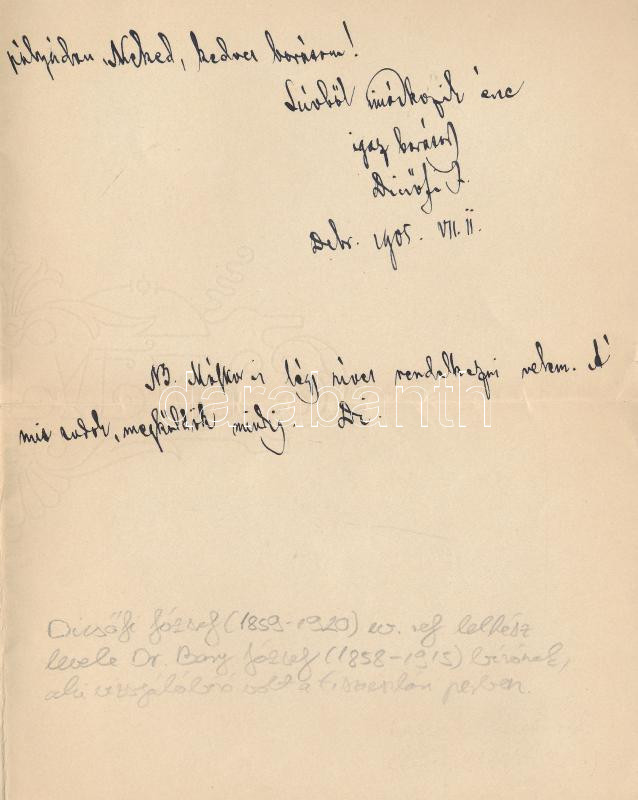 pályádon Neked, kedves barátom!
Szívből imádkozik érte
igaz barátod
Dicsőfi J.
Debr. 1905. VII. II.
NB. Máskor is légy szíves rendelkezni velem. A
mit tudok, megküldök mindig. Di.
darabanth
Dicsőfi József (1859-1920) ev. ref lelkész
levele Dr. Bary József (1858-1915) bírónak,
aki vizsgálóbíró volt a tiszaeszlári perben.